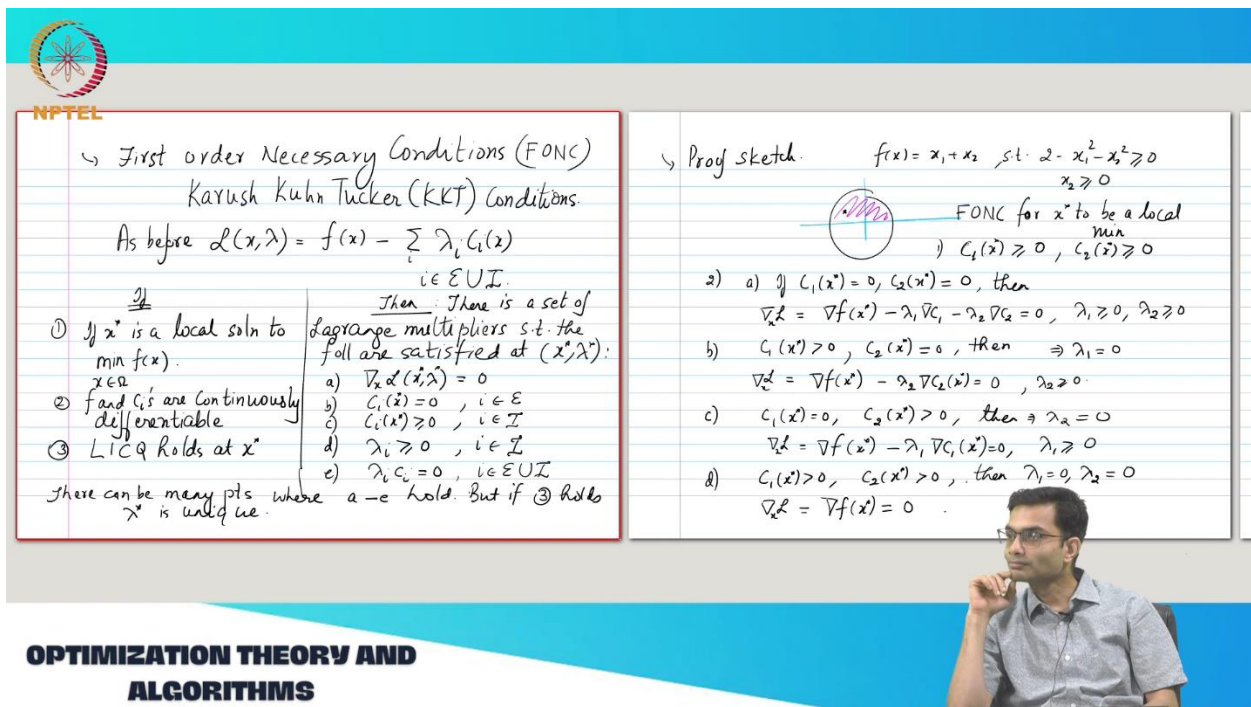 NPTEL
↳ First order Necessary Conditions (FONC)
Karush Kuhn Tucker (KKT) Conditions.
As before ℒ(x,λ) = f(x) - Σ λᵢ Cᵢ(x)
i∈ ℰUI.
If
① If x* is a local soln to
min f(x).
x∈Ω
② f and Cᵢ's are continuously
differentiable
③ LICQ holds at x*
Then : There is a set of
Lagrange multipliers s.t. the
foll are satisfied at (x*,λ*):
a) ∇ₓℒ(x*,λ*) = 0
b) Cᵢ(x*) = 0 , i∈ ℰ
c) Cᵢ(x*) ≥ 0 , i∈ I
d) λᵢ ≥ 0 , i∈ I
e) λᵢ Cᵢ = 0 , i∈ ℰUI
There can be many pts where a-e hold. But if ③ holds
λ* is unique.
↳ Proof sketch. f(x) = x₁ + x₂ , s.t. 2 - x₁² - x₂² ≥ 0
x₂ ≥ 0
FONC for x* to be a local
min
1) C₁(x*) ≥ 0 , C₂(x*) ≥ 0
2) a) If C₁(x*) = 0, C₂(x*) = 0, then
∇ₓℒ = ∇f(x*) - λ₁∇C₁ - λ₂∇C₂ = 0 , λ₁ ≥ 0, λ₂ ≥ 0
b) C₁(x*) > 0 , C₂(x*) = 0 , then ⇒ λ₁ = 0
∇ₓℒ = ∇f(x*) - λ₂∇C₂(x*) = 0 , λ₂ ≥ 0.
c) C₁(x*) = 0, C₂(x*) > 0, then ⇒ λ₂ = 0
∇ₓℒ = ∇f(x*) - λ₁∇C₁(x*) = 0, λ₁ ≥ 0
d) C₁(x*) > 0, C₂(x*) > 0, then λ₁ = 0, λ₂ = 0
∇ₓℒ = ∇f(x*) = 0 .
OPTIMIZATION THEORY AND
ALGORITHMS